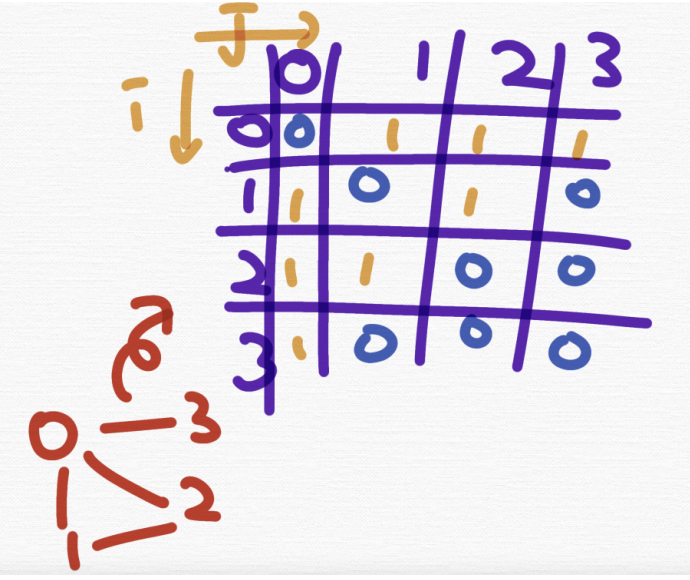 J
i
0 1 2 3
0 0 1 1 1
1 1 0 1 0
2 1 1 0 0
3 1 0 0 0
0 3
2
1